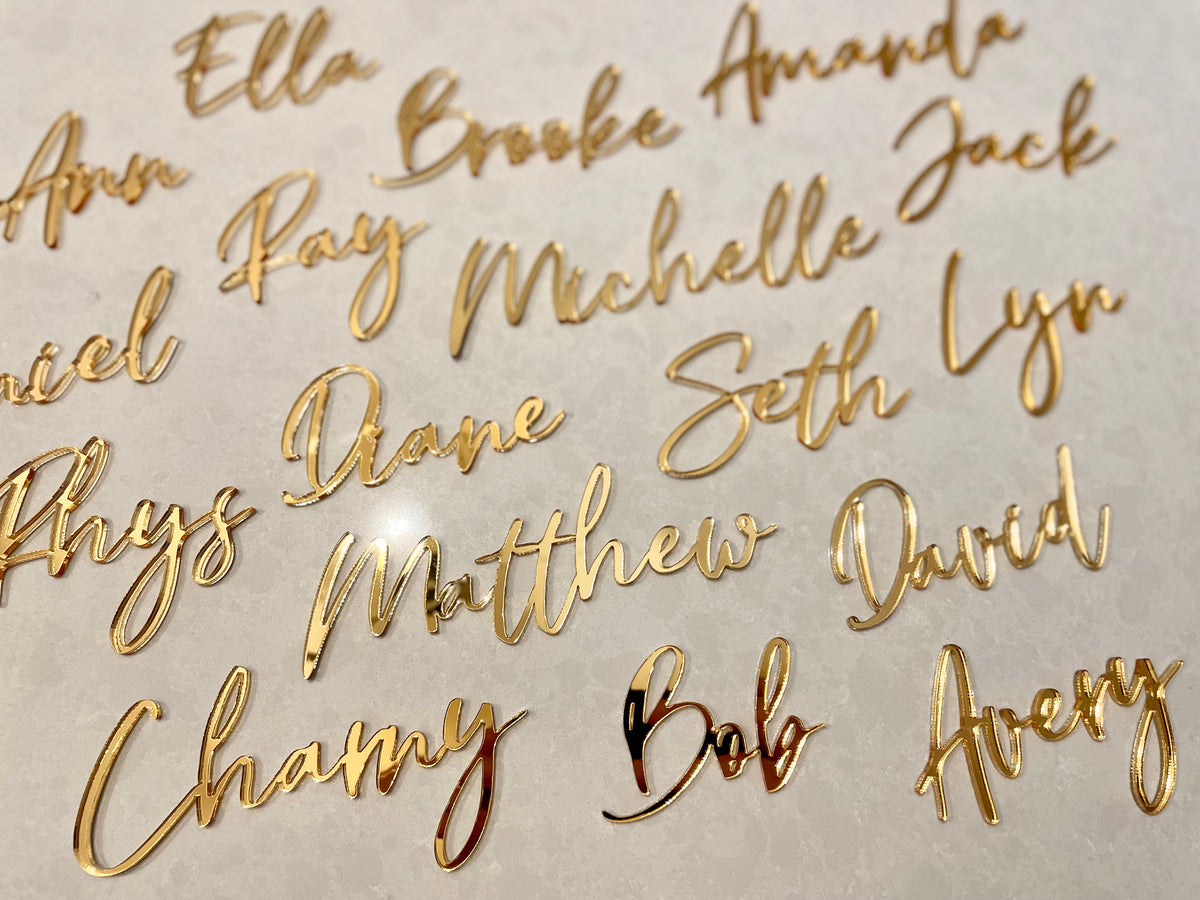 Ella
Brooke
Amanda
Ann
Ray
Michelle
Jack
niel
Diane
Seth
Lyn
Rhys
Matthew
David
Chamy
Bob
Avery